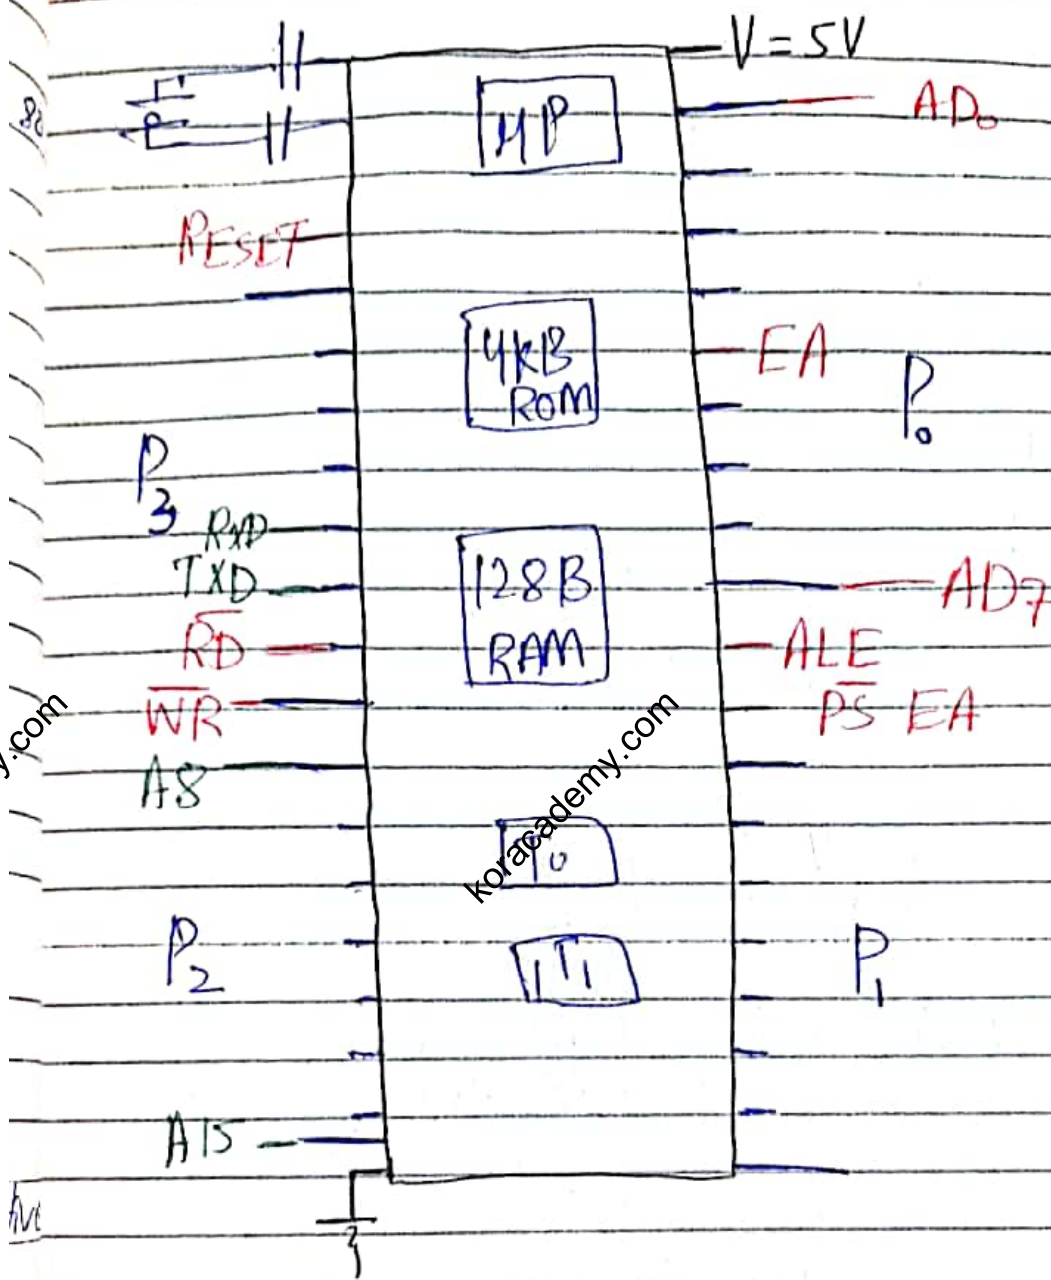 V = 5V
μP
AD0
RESET
4KB
ROM
EA
P0
P3
RXD
TXD
128B
RAM
AD7
RD
ALE
WR
PS EA
A8
koracademy.com
y.com
T0
P2
T1
P1
A15